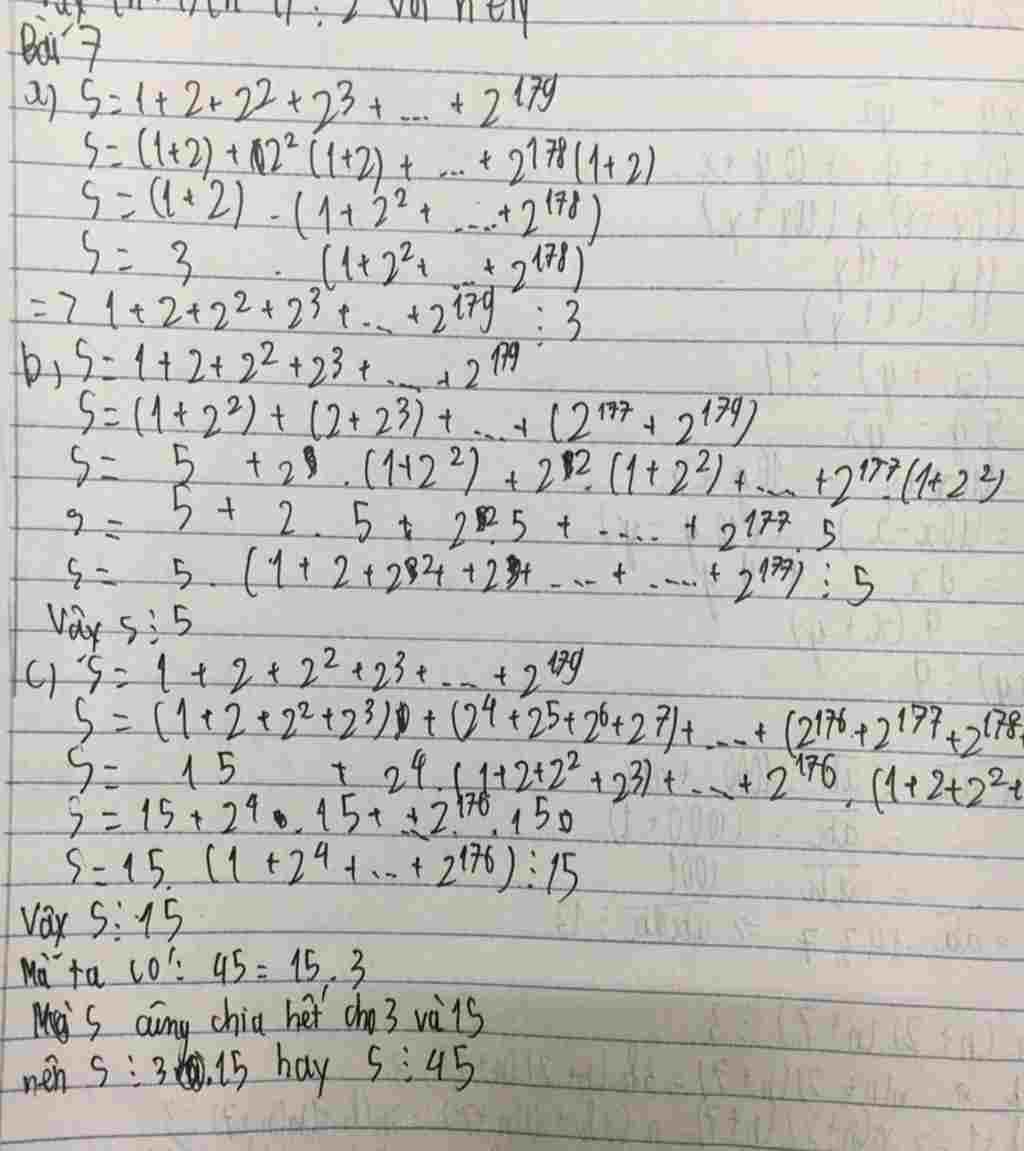 Bài 7
a) S = 1 + 2 + 2² + 2³ + ... + 2¹⁷⁹
S = (1+2) + 2² (1+2) + ... + 2¹⁷⁸ (1+2)
S = (1+2) . (1 + 2² + ... + 2¹⁷⁸)
S = 3 . (1 + 2² + ... + 2¹⁷⁸)
=> 1 + 2 + 2² + 2³ + ... + 2¹⁷⁹ ⋮ 3
b, S = 1 + 2 + 2² + 2³ + ... + 2¹⁷⁹
S = (1 + 2²) + (2 + 2³) + ... + (2¹⁷⁷ + 2¹⁷⁹)
S = 5 + 2 . (1+2²) + 2² . (1+2²) + ... + 2¹⁷⁷ . (1+2²)
S = 5 + 2 . 5 + 2² . 5 + .... + 2¹⁷⁷ . 5
S = 5 . (1 + 2 + 2² + 2³ + ... + .... + 2¹⁷⁷) ⋮ 5
Vậy S ⋮ 5
c) S = 1 + 2 + 2² + 2³ + ... + 2¹⁷⁹
S = (1 + 2 + 2² + 2³) + (2⁴ + 2⁵ + 2⁶ + 2⁷) + ... + (2¹⁷⁶ + 2¹⁷⁷ + 2¹⁷⁸ +
S = 15 + 2⁴ . (1 + 2 + 2² + 2³) + ... + 2¹⁷⁶ . (1 + 2 + 2² +
S = 15 + 2⁴ . 15 + .. + 2¹⁷⁶ . 15
S = 15 . (1 + 2⁴ + ... + 2¹⁷⁶) ⋮ 15
Vậy S ⋮ 15
Mà ta có : 45 = 15 . 3
Mà S cũng chia hết cho 3 và 15
nên S ⋮ 3 . 15 hay S ⋮ 45